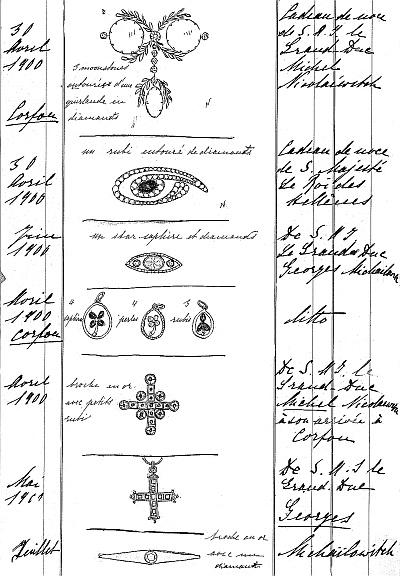 30
Avril
1900
Corfou
3 moonstones
entourées d'une
guirlande en
diamants
Cadeau de noce
de S. A. I. le
Grand Duc
Michel
Nicolaéwitch
30
Avril
1900
un rubi entouré de diamants
Cadeau de noce
de S. Majesté
Le Roi des
Hellènes
Juin
1900
un star saphire et diamants
De S. A. I.
Le Grand Duc
Georges
Avril
1900
Corfou
4
saphirs
4
perles
3
rubis
ditto
Avril
1900
broche en or
avec petits
rubi
De S. A. I. le
Grand Duc
Michel
à son arrivée à
Corfou
Mai
De S. A. I. le
Grand Duc
Georges
Michailowitch
Juillet
broche en or
avec un
diamant